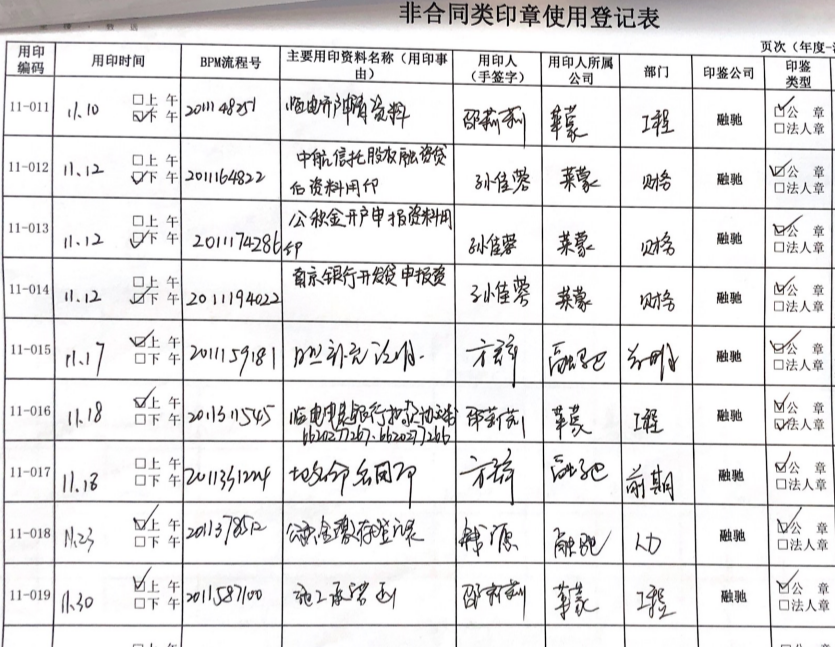 非合同类印章使用登记表
页次（年度-
用印编码 用印时间 BPM流程号 主要用印资料名称（用印事由） 用印人（手签字） 用印人所属公司 部门 印鉴公司 印鉴类型
11-011 11.10 □上午 ☑下午 2011148251 临电开户申请资料 邵莉莉 莱蒙 工程 融驰 ☑公章 □法人章
11-012 11.12 □上午 ☑下午 2011164822 中航信托股权融资贷后资料用印 孙佳蓉 莱蒙 财务 融驰 ☑公章 □法人章
11-013 11.12 □上午 ☑下午 2011174286 公积金开户申报资料用印 孙佳蓉 莱蒙 财务 融驰 ☑公章 □法人章
11-014 11.12 □上午 ☑下午 2011194022 南京银行开发贷申报资 孙佳蓉 莱蒙 财务 融驰 ☑公章 □法人章
11-015 11.17 ☑上午 □下午 2011159181 日照补充说明. 融驰 融驰 ☑公章 □法人章
11-016 11.18 ☑上午 □下午 2011311545 临电电费银行扣款协议书 6620277267、6620277266 邵莉莉 莱蒙 工程 融驰 ☑公章 ☑法人章
11-017 11.18 □上午 □下午 2011351224 地名命名用印 融驰 前期 融驰 ☑公章 □法人章
11-018 11.23 ☑上午 □下午 2011378512 公积金缴存登记表 融驰 人力 融驰 ☑公章 □法人章
11-019 11.30 ☑上午 □下午 2011587100 施工承诺函 邵莉莉 莱蒙 工程 融驰 ☑公章 □法人章